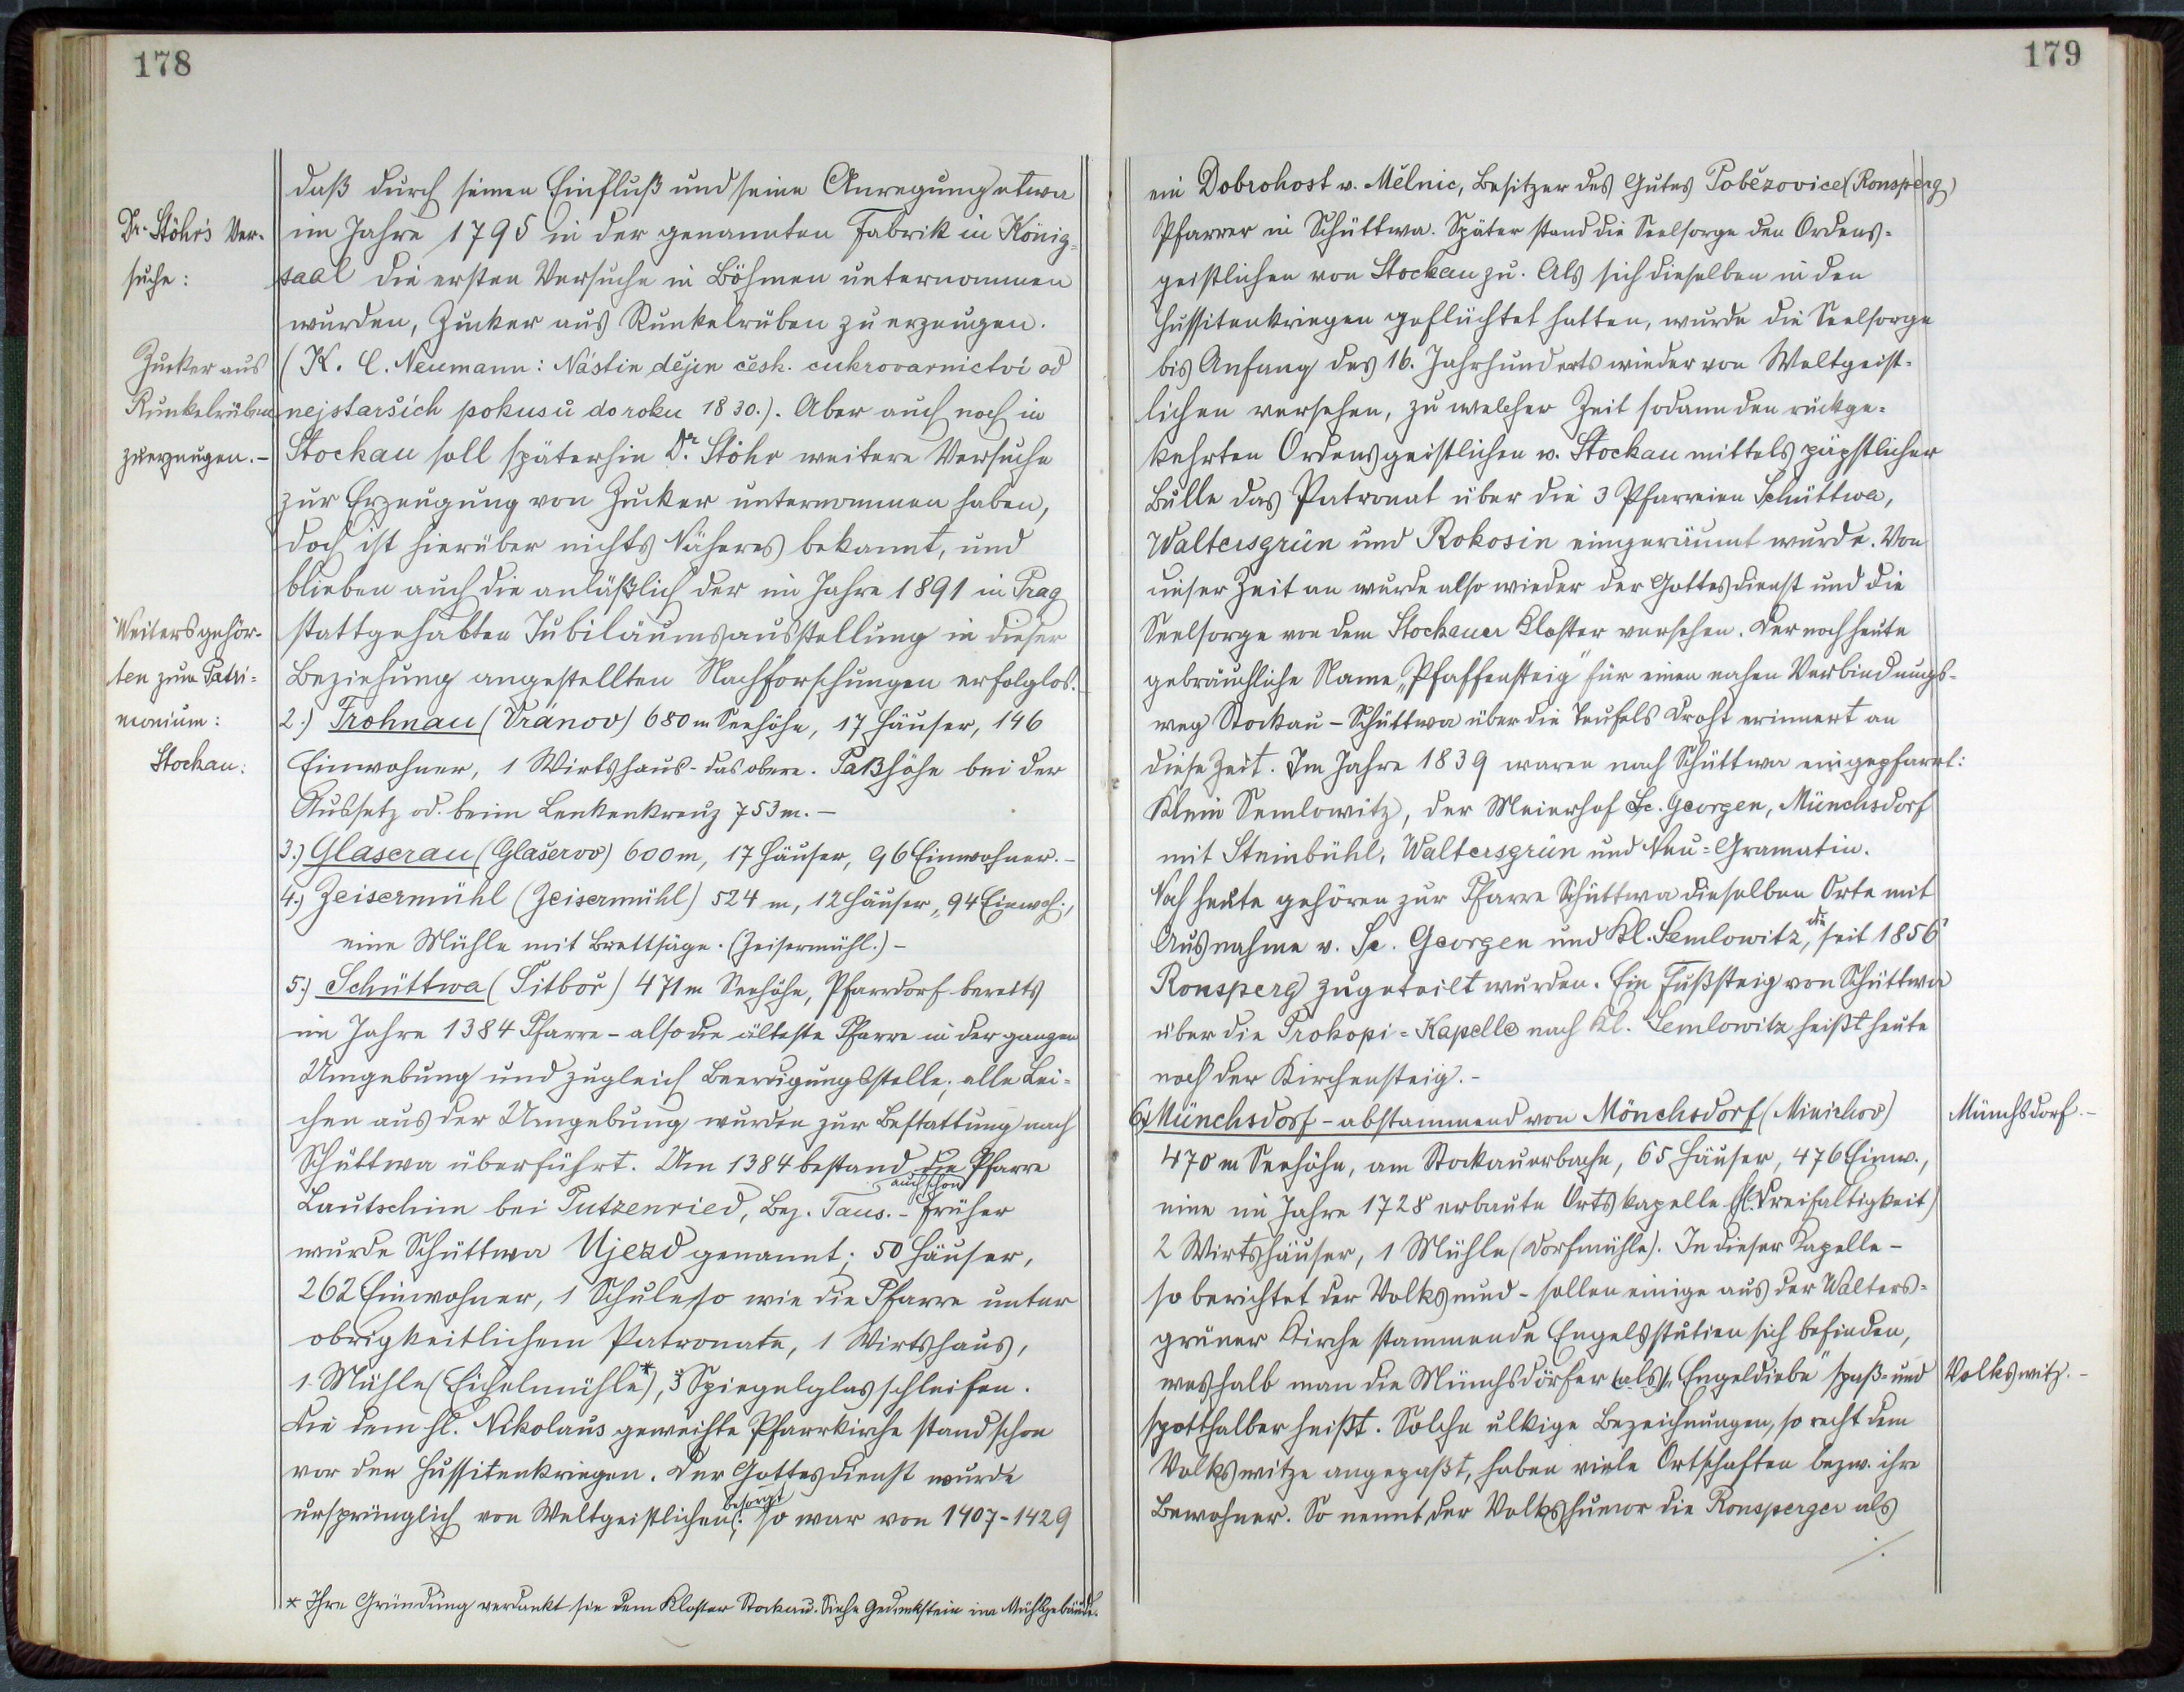 178
Dr. Stöhr's Ver-
suche:
Zucker aus
Runkelrüben
zuerzeugen.-
Weiters gehör-
ten zum Patri=
monium:
Stockau:
daß durch seinen Einfluß und seine Anregung etwa
im Jahre 1795 in der genannten Fabrik in König=
saal die ersten Versuche in Böhmen unternommen
wurden, Zucker aus Runkelrüben zu erzeugen.
(K. C. Neumann: Nástin dějin česk. cukrovarnictví od
nejstarších pokusů do roku 1830.). Aber auch noch in
Stockau soll späterhin Dr. Stöhr weitere Versuche
zur Erzeugung von Zucker unternommen haben,
doch ist hierüber nichts Näheres bekannt, und
blieben auch die anläßlich der im Jahre 1891 in Prag
stattgehabten Jubiläumsausstellung in dieser
Beziehung angestellten Nachforschungen erfolglos.-
2.) Trohnau (Vránov) 680 m Seehöhe, 17 Häuser, 146
Einwohner, 1 Wirtshaus - das obere. Paßhöhe bei der
Aussetz od. beim Lenkenkreuz 753 m.-
3.) Glaserau (Glašerov) 600 m, 17 Häuser, 96 Einwohner.-
4.) Zeisermühl (Zeisermühl) 524 m, 12 Häuser, 94 Einwoh.,
eine Mühle mit Brettsäge. (Zeisermühl.)-
5.) Schüttwa (Šitboř) 471 m Seehöhe, Pfarrdorf bereits
im Jahre 1384 Pfarre - also die älteste Pfarre in der ganzen
Umgebung und zugleich Beerdigungsstelle; alle Lei=
chen aus der Umgebung wurden zur Bestattung nach
Schüttwa überführt. Um 1384 bestand auch schon die Pfarre
Lautschim bei Putzenried, Bez. Taus.- Früher
wurde Schüttwa Ujezd genannt; 50 Häuser,
262 Einwohner, 1 Schule, so wie die Pfarre unter
obrigkeitlichem Patronate, 1 Wirtshaus,
1 Mühle (Eichelmühle*), 3 Spiegelglasschleifen.
Die dem hl. Nikolaus geweihte Pfarrkirche stand schon
vor den Hussitenkriegen. Der Gottesdienst wurde
ursprünglich von Weltgeistlichen besorgt; so war von 1407-1429
* Ihre Gründung verdankt sie dem Kloster Stockau. Siehe Gedenkstein im Mühlgebäude.
179
ein Dobrohost v. Mělnic, Besitzer des Gutes Poběžovice (Ronsperg)
Pfarrer in Schüttwa. Später stand die Seelsorge den Ordens-
geistlichen von Stockau zu. Als sich dieselben in den
Hussitenkriegen geflüchtet hatten, wurde die Seelsorge
bis Anfang des 16. Jahrhunderts wieder von Weltgeist-
lichen versehen, zu welcher Zeit sodann den rückge-
kehrten Ordensgeistlichen v. Stockau mittels päpstlicher
Bulle das Patronat über die 3 Pfarreien Schüttwa,
Waltersgrün und Rokosin eingeräumt wurde. Von
dieser Zeit an wurde also wieder der Gottesdienst und die
Seelsorge von dem Stockauer Kloster versehen. Der noch heute
gebräuchliche Name „Pfaffensteig" für einen nahen Verbindungs-
weg Stockau - Schüttwa über die Teufels Droht erinnert an
diese Zeit. Im Jahre 1839 waren nach Schüttwa eingepfarrt:
Klein Semlowitz, der Meierhof St. Georgen, Münchsdorf
mit Steinbühl, Waltersgrün und Neu=Gramatin.
Noch heute gehören zur Pfarre Schüttwa dieselben Orte mit
Ausnahme v. St. Georgen und Kl. Semlowitz, die seit 1856
Ronsperg zugeteilt wurden. Ein Fußsteig von Schüttwa
über die Prokopi=Kapelle nach Kl. Semlowitz heißt heute
noch der Kirchensteig.-
6.) Münchsdorf - abstammend von Mönchsdorf (Minichov)
470 m Seehöhe, am Stockauerbache, 65 Häuser, 476 Einw.,
eine im Jahre 1728 erbaute Ortskapelle (hl. Dreifaltigkeit)
2 Wirtshäuser, 1 Mühle (Dorfmühle). In dieser Kapelle -
so berichtet der Volksmund - sollen einige aus der Walters-
grüner Kirche stammende Engelsstatuen sich befinden,
weshalb man die Münchsdörfer (als) „Engeldiebe" spaß- und
spotthalber heißt. Solche ulkige Bezeichnungen, so recht dem
Volkswitze angepaßt, haben viele Ortschaften bezw. ihre
Bewohner. So nennt der Volkshumor die Ronsperger als
./.
Münchsdorf.-
Volkswitz.-